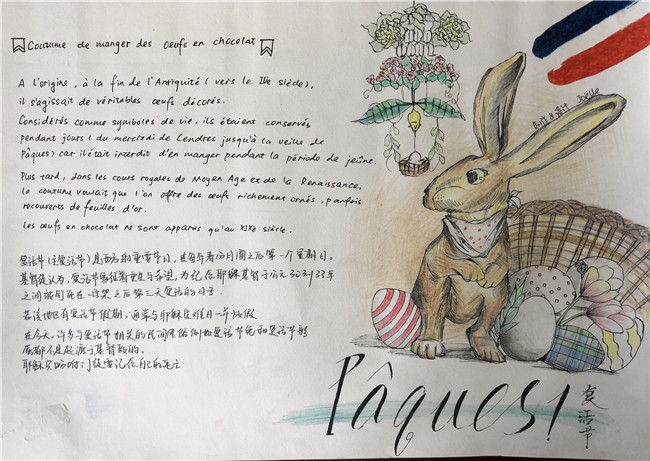 Coutume de manger des oeufs en chocolat
A l'origine, à la fin de l'Antiquité (vers le IVe siècle),
il s'agissait de véritables œufs décorés.
Considérés comme symboles de vie, ils étaient conservés
pendant jours (du mercredi de Cendres jusqu'à la veille de
Pâques) car il était interdit d'en manger pendant la période de jeûne.
Plus tard, dans les cours royales de Moyen Age et de la Renaissance,
la coutume voulait que l'on offre des œufs richement ornés, parfois
recouverts de feuilles d'or.
Les œufs en chocolat ne sont apparus qu'au XIXe siècle.
复活节(主复活节)是西方的重要节日,在每年春分月圆之后第一个星期日。
基督徒认为,复活节象征着重生与希望,为纪念耶稣基督于公元30到33年
之间被钉死在十字架之后第三天复活的日子
若该地也有复活节假期,通常与耶稣受难日一并放假
在今天,许多与复活节相关的民间风俗例如复活节兔和复活节彩
蛋都不是起源于基督教的。
耶稣只吩咐门徒要记念自己的死亡
Joëlle
Pâques!
复活节